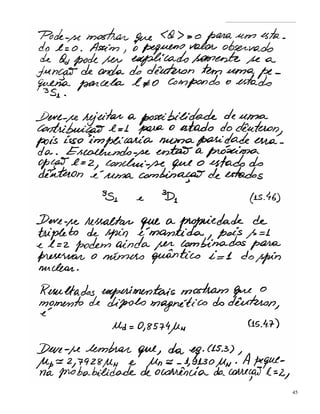 Pode-se mostrar que <Q> = 0 para um esta-
do l=0. Assim, o pequeno valor observado
de Qd pode ser explicado somente se a
função de onda do dêuteron tem uma pe-
quena parcela l≠0 compondo o estado
³S₁.
Deve-se rejeitar a possibilidade de uma
contribuição l=1 para o estado do dêuteron,
pois isso implicaria numa paridade erra-
da. Escolhendo-se então a próxima
opção l=2, conclui-se que o estado do
dêuteron é uma combinação de estados
³S₁ e ³D₁ (15.46)
Deve-se ressaltar que a propriedade de
tripleto de spin é mantida, pois s=1
e l=2 podem ainda ser combinados para
preservar o número quântico i=1 do spin
nuclear.
Resultados experimentais mostram que o
momento de dipolo magnético do dêuteron,
é
μd = 0,8574 μN (15.47)
Deve-se lembrar que, da eq. (15.3),
μp = 2,7928 μN e μn = -1,9130 μN. A peque-
na probabilidade de ocorrência da correção l=2,
45